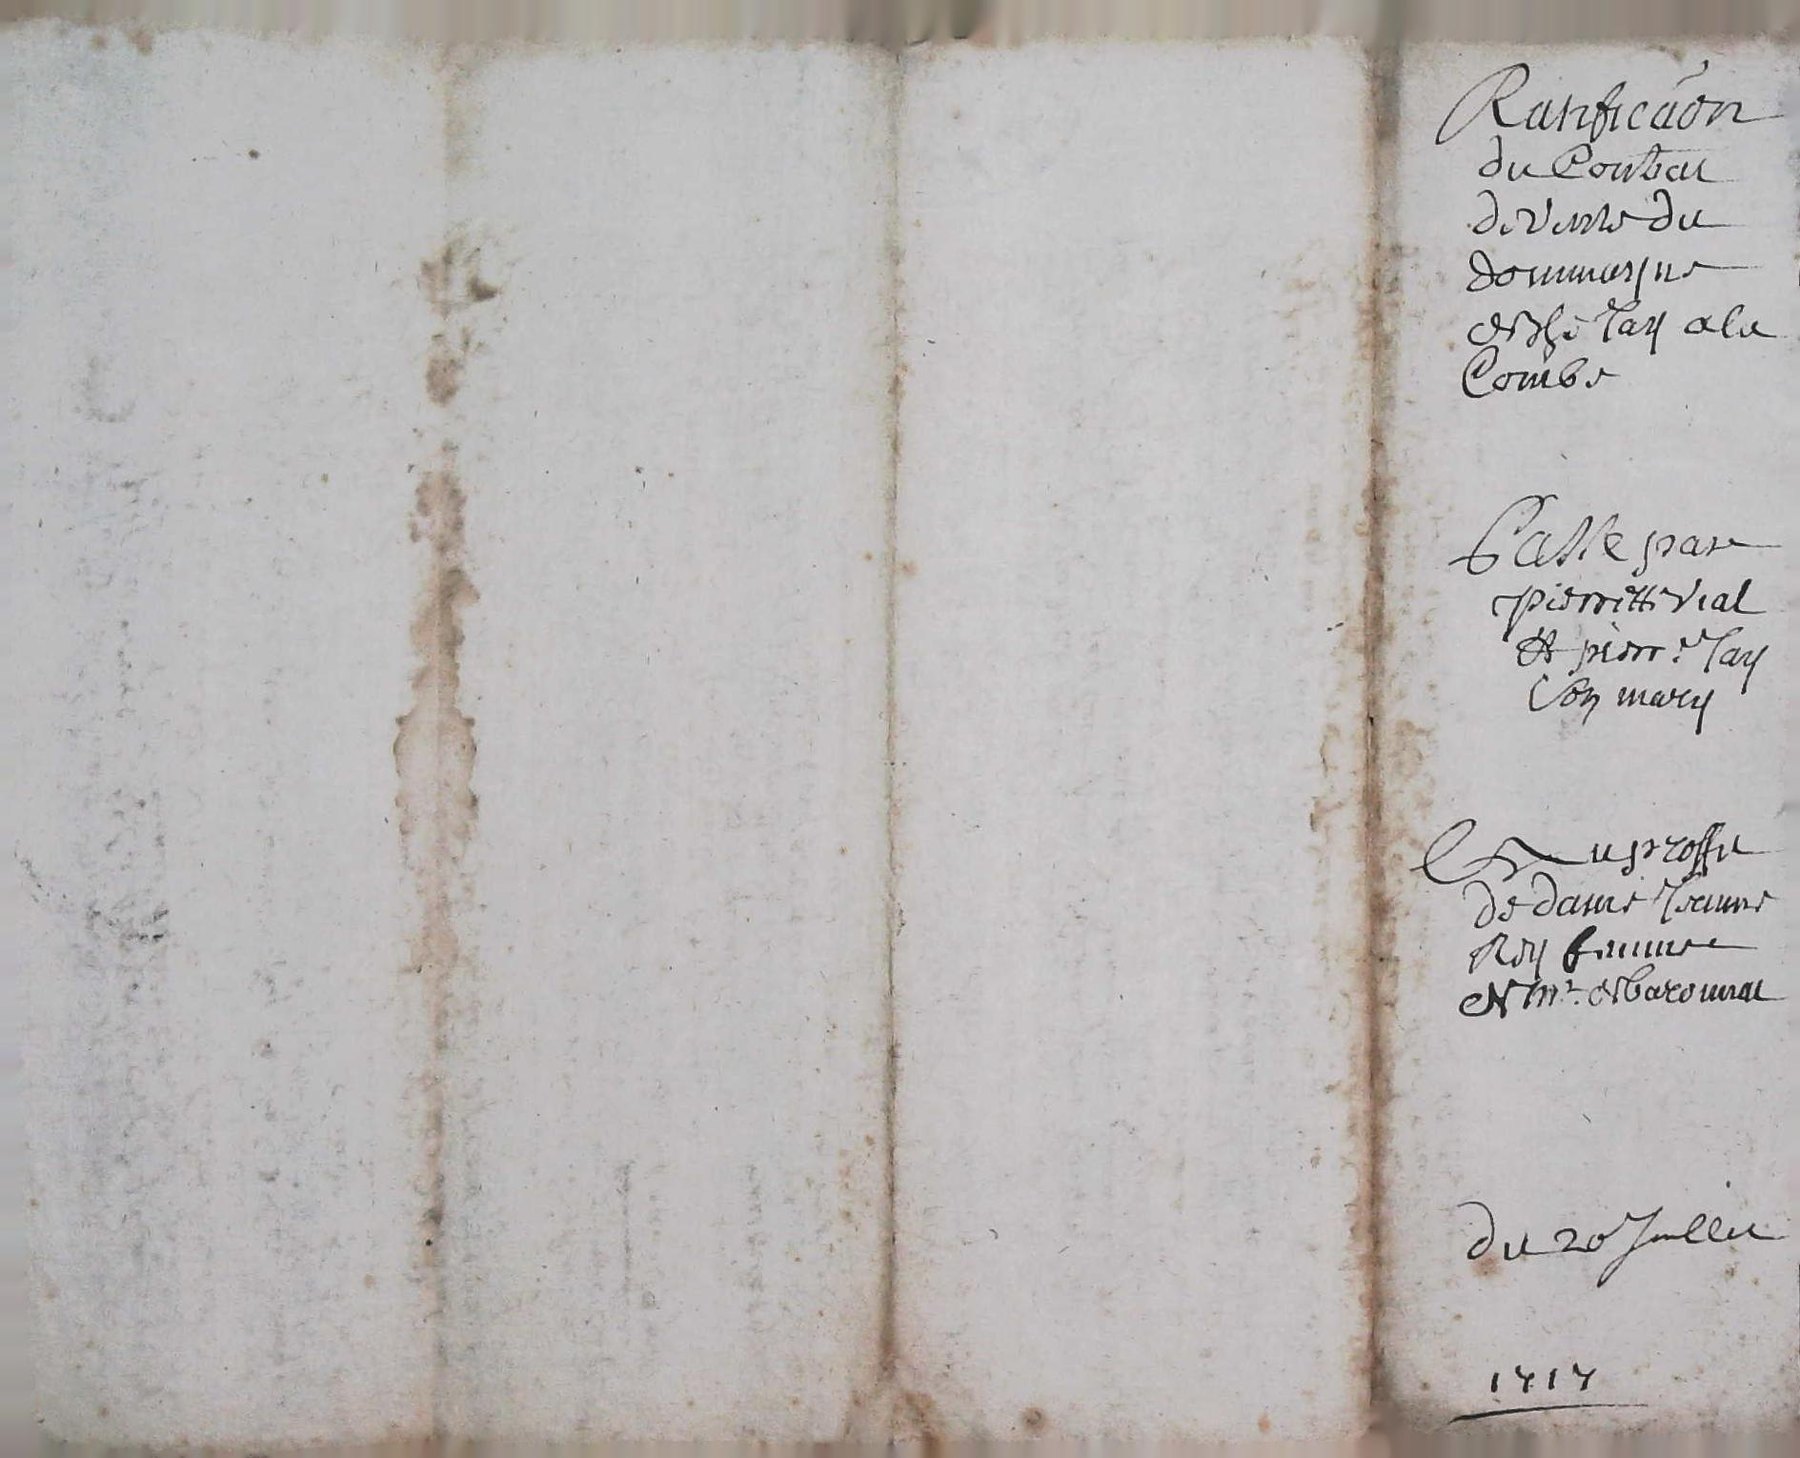 Ratificaõn
du Contrat
de Vente du
dommayne
de Jay a la
Combe
Passe par
pierrette Vial
et pierre Jay
son mary
Au proffit
de dame Jeanne
Roy femme
de Mr. de Baronnat
du 20 Juillet
1717